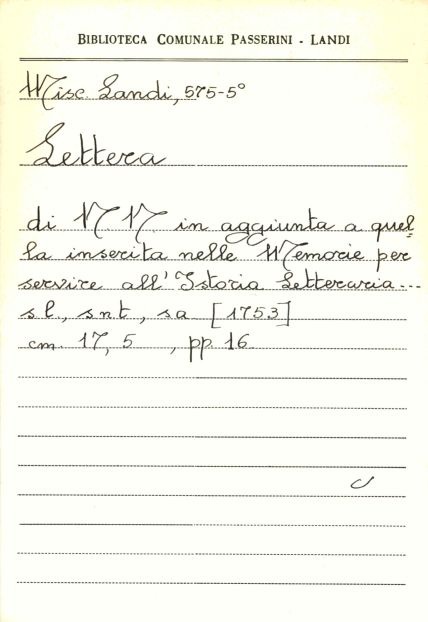 BIBLIOTECA COMUNALE PASSERINI - LANDI
Misc. Landi, 575-5°
Lettera
di N N. in aggiunta a quel=
la inserita nelle Memorie per
servire all' Istoria Letteraria...
s l., s n t , s a [1753]
cm. 17, 5 , pp. 16